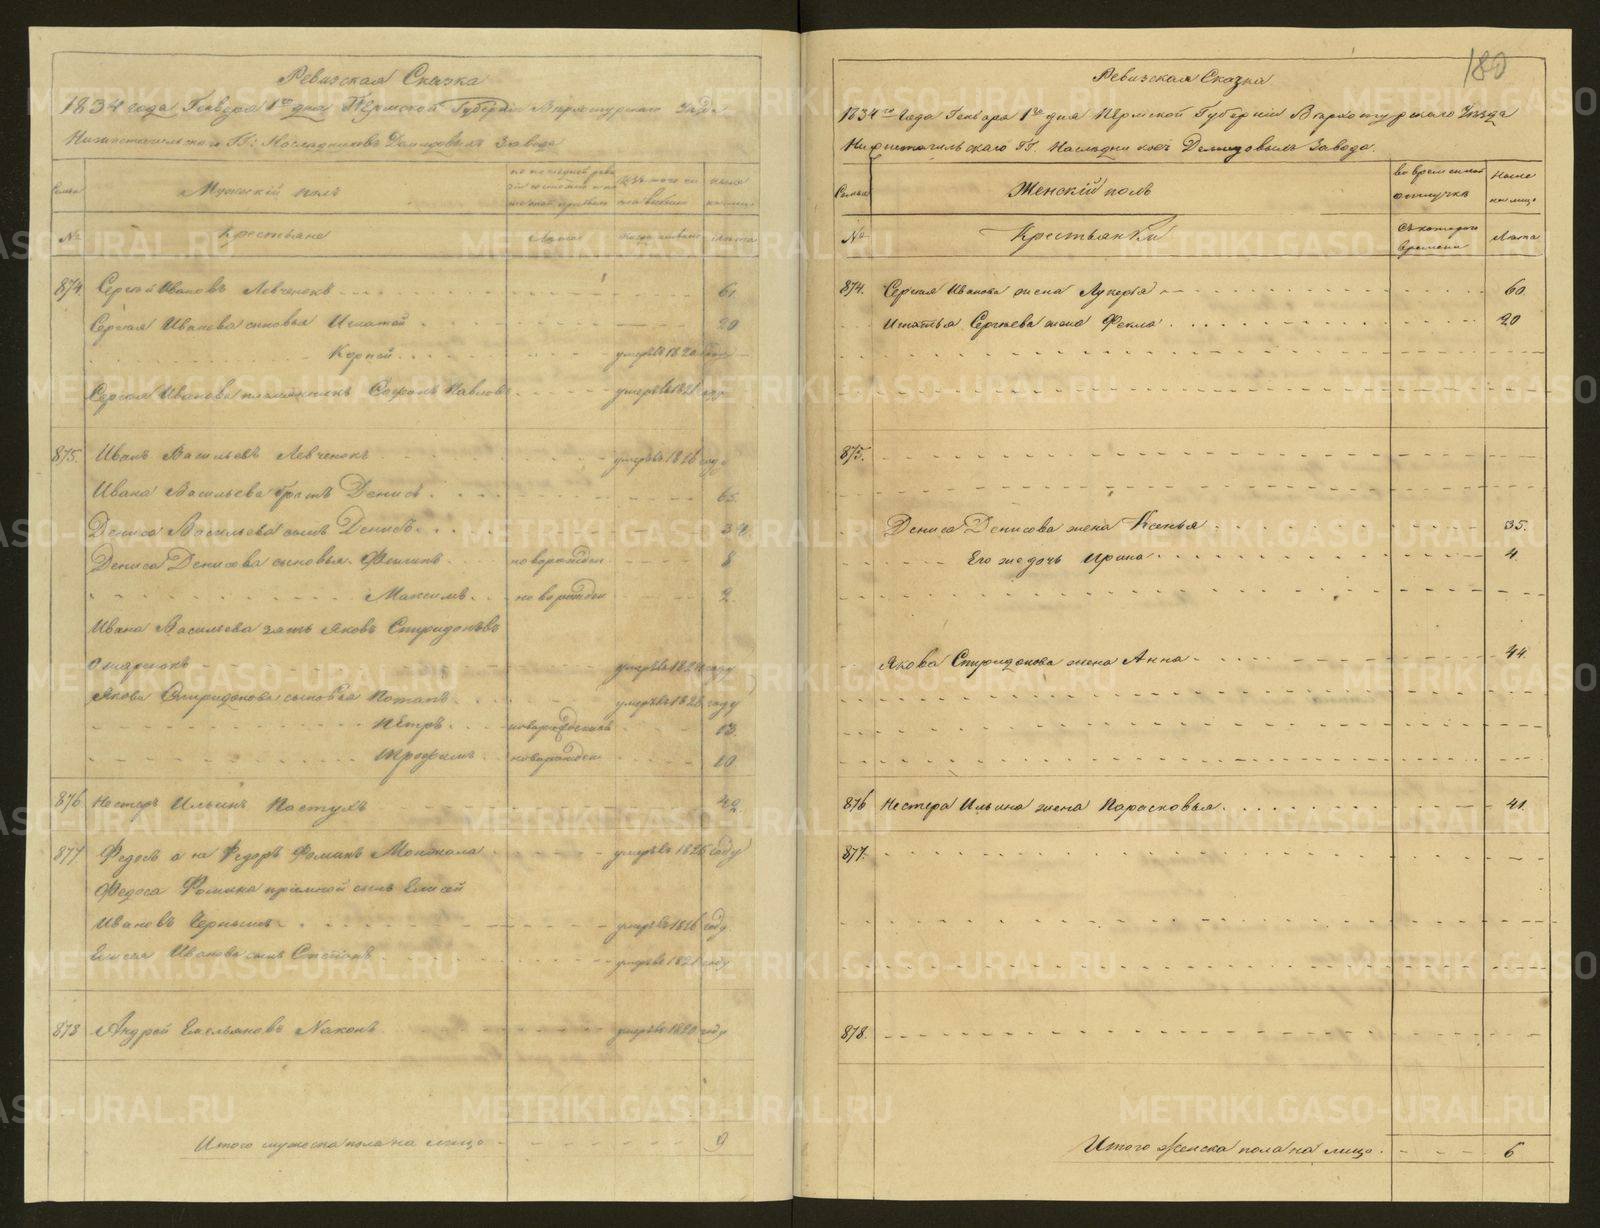 Ревизская Сказка
1834 года Генваря 1го дня Пермской Губерніи Верхотурскаго Уезда
Нижнетагильского ГГ: Наследниковъ Демидовыхъ Завода
Семьи
Мужескій полъ
по последней реви
зіи состояло и по
Изъ того чи
сла выбыло
ныне
на лицо
№
Крестьяне
Лета
Когда имянно
лета
874 Сергей Ивановъ Левченокъ 61
Сергея Иванова сыновья Игнатей 20
Корней умеръ въ 1820 году
Сергея Иванова племянникъ Софонъ Павловъ умеръ въ 1821 году
875. Иванъ Васильевъ Левченокъ умеръ въ 1826 году
Ивана Васильева братъ Денисъ 65
Дениса Васильева сынъ Денисъ 34
Дениса Денисова сыновья Филипъ новорожден 8
Максимъ новорожден 2
Ивана Васильева зять Яковъ Спиридоновъ
умеръ въ 1824 году
Якова Спиридонова сыновья Потапъ умеръ въ 1828 году
Петръ новорожденъ 13
Трофимъ новорожден 10
876 Нестеръ Ильинъ Пастухъ 42
877 Федосъ а не Федоръ Фоминъ умеръ въ 1826 году
Федоса Фомина пріемной сынъ Елисей
Ивановъ Чернышъ умеръ въ 1816 году
Елисея Иванова сынъ умеръ въ 1821 году
878 Андрей Емельяновъ умеръ въ 1820 году
Итого мужеска пола на лицо 9
180
Ревизская Сказка
1834го года Генваря 1го дня Пермской Губерніи Верхотурскаго Уезда
Нижнетагильскаго ГГ. Наследниковъ Демидовыхъ Завода.
Семьи
Женскій полъ
во временной
отлучке
Ныне
на лицо
№
Крестьянки
Съ котораго
времени
Лета
874. Сергея Иванова жена Лукерья 60
Игнатья Сергеева жена Фекла 20
875.
Дениса Денисова жена Ксенья 35.
Его же дочь Ирина 4
Якова Спиридонова жена Анна 44
876 Нестера Ильина жена Парасковья 41
877.
878.
Итого Женска пола на лицо. 6
METRIKI.GASO-URAL.RU